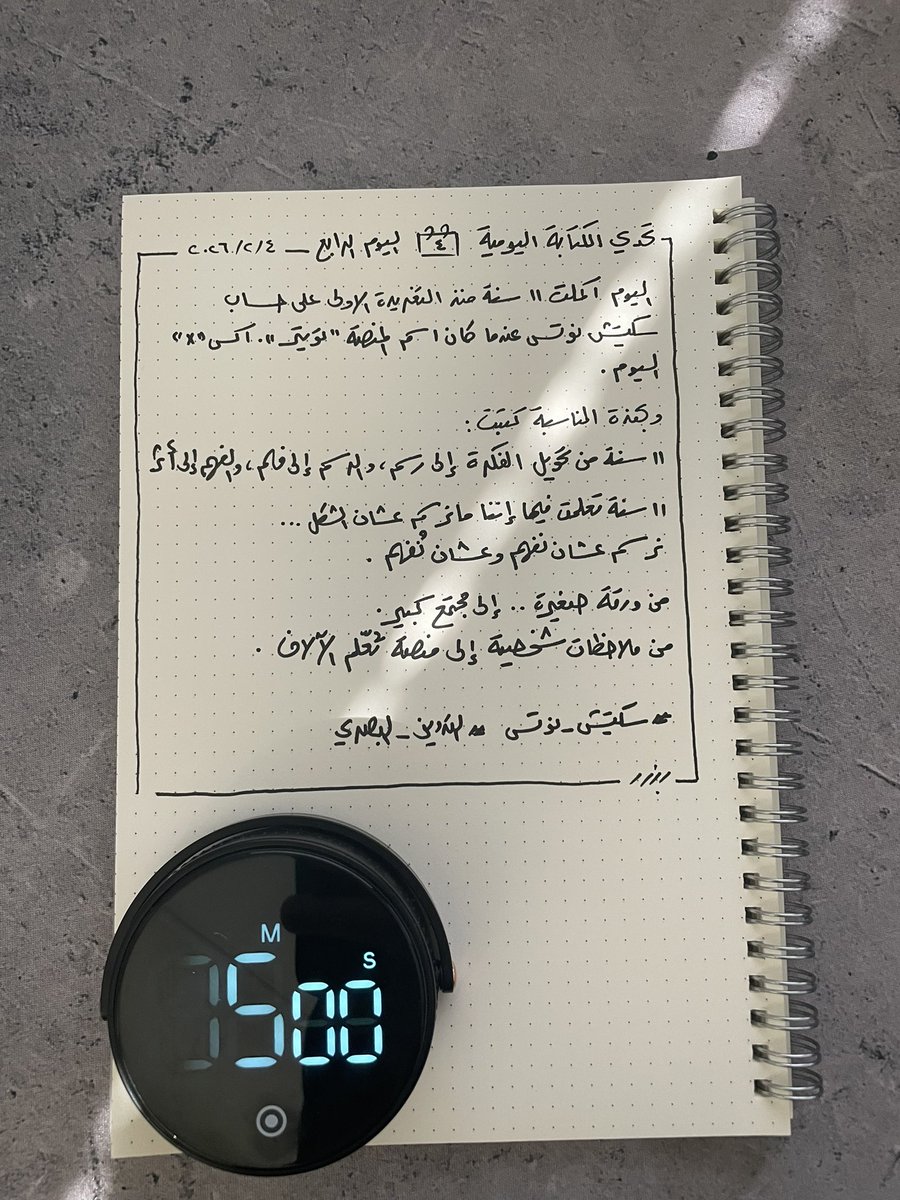 تحدي الكتابة اليومية ٤ اليوم الرابع – ٢٠٢٦/٢/٤
اليوم أكملت ١١ سنة منذ التغريدة الاولى على حساب
سكيتش نوتس عندما كان اسم المنصة "تويتر". اكس "x"
اليوم.
وبهذة المناسبة كتبت:
١١ سنة من تحويل الفكرة إلى رسم، والرسم إلى فهم، والفهم إلى أثر
١١ سنة تعلمت فيها إننا ما نرسم عشان الشكل ...
نرسم عشان نفهم وعشان نُفهم.
من ورقة صغيرة .. إلى مجتمع كبير.
من ملاحظات شخصية إلى منصة تُعلّم الآلاف.
# سكيتش_نوتس # التدوين_البصري
M
S
00